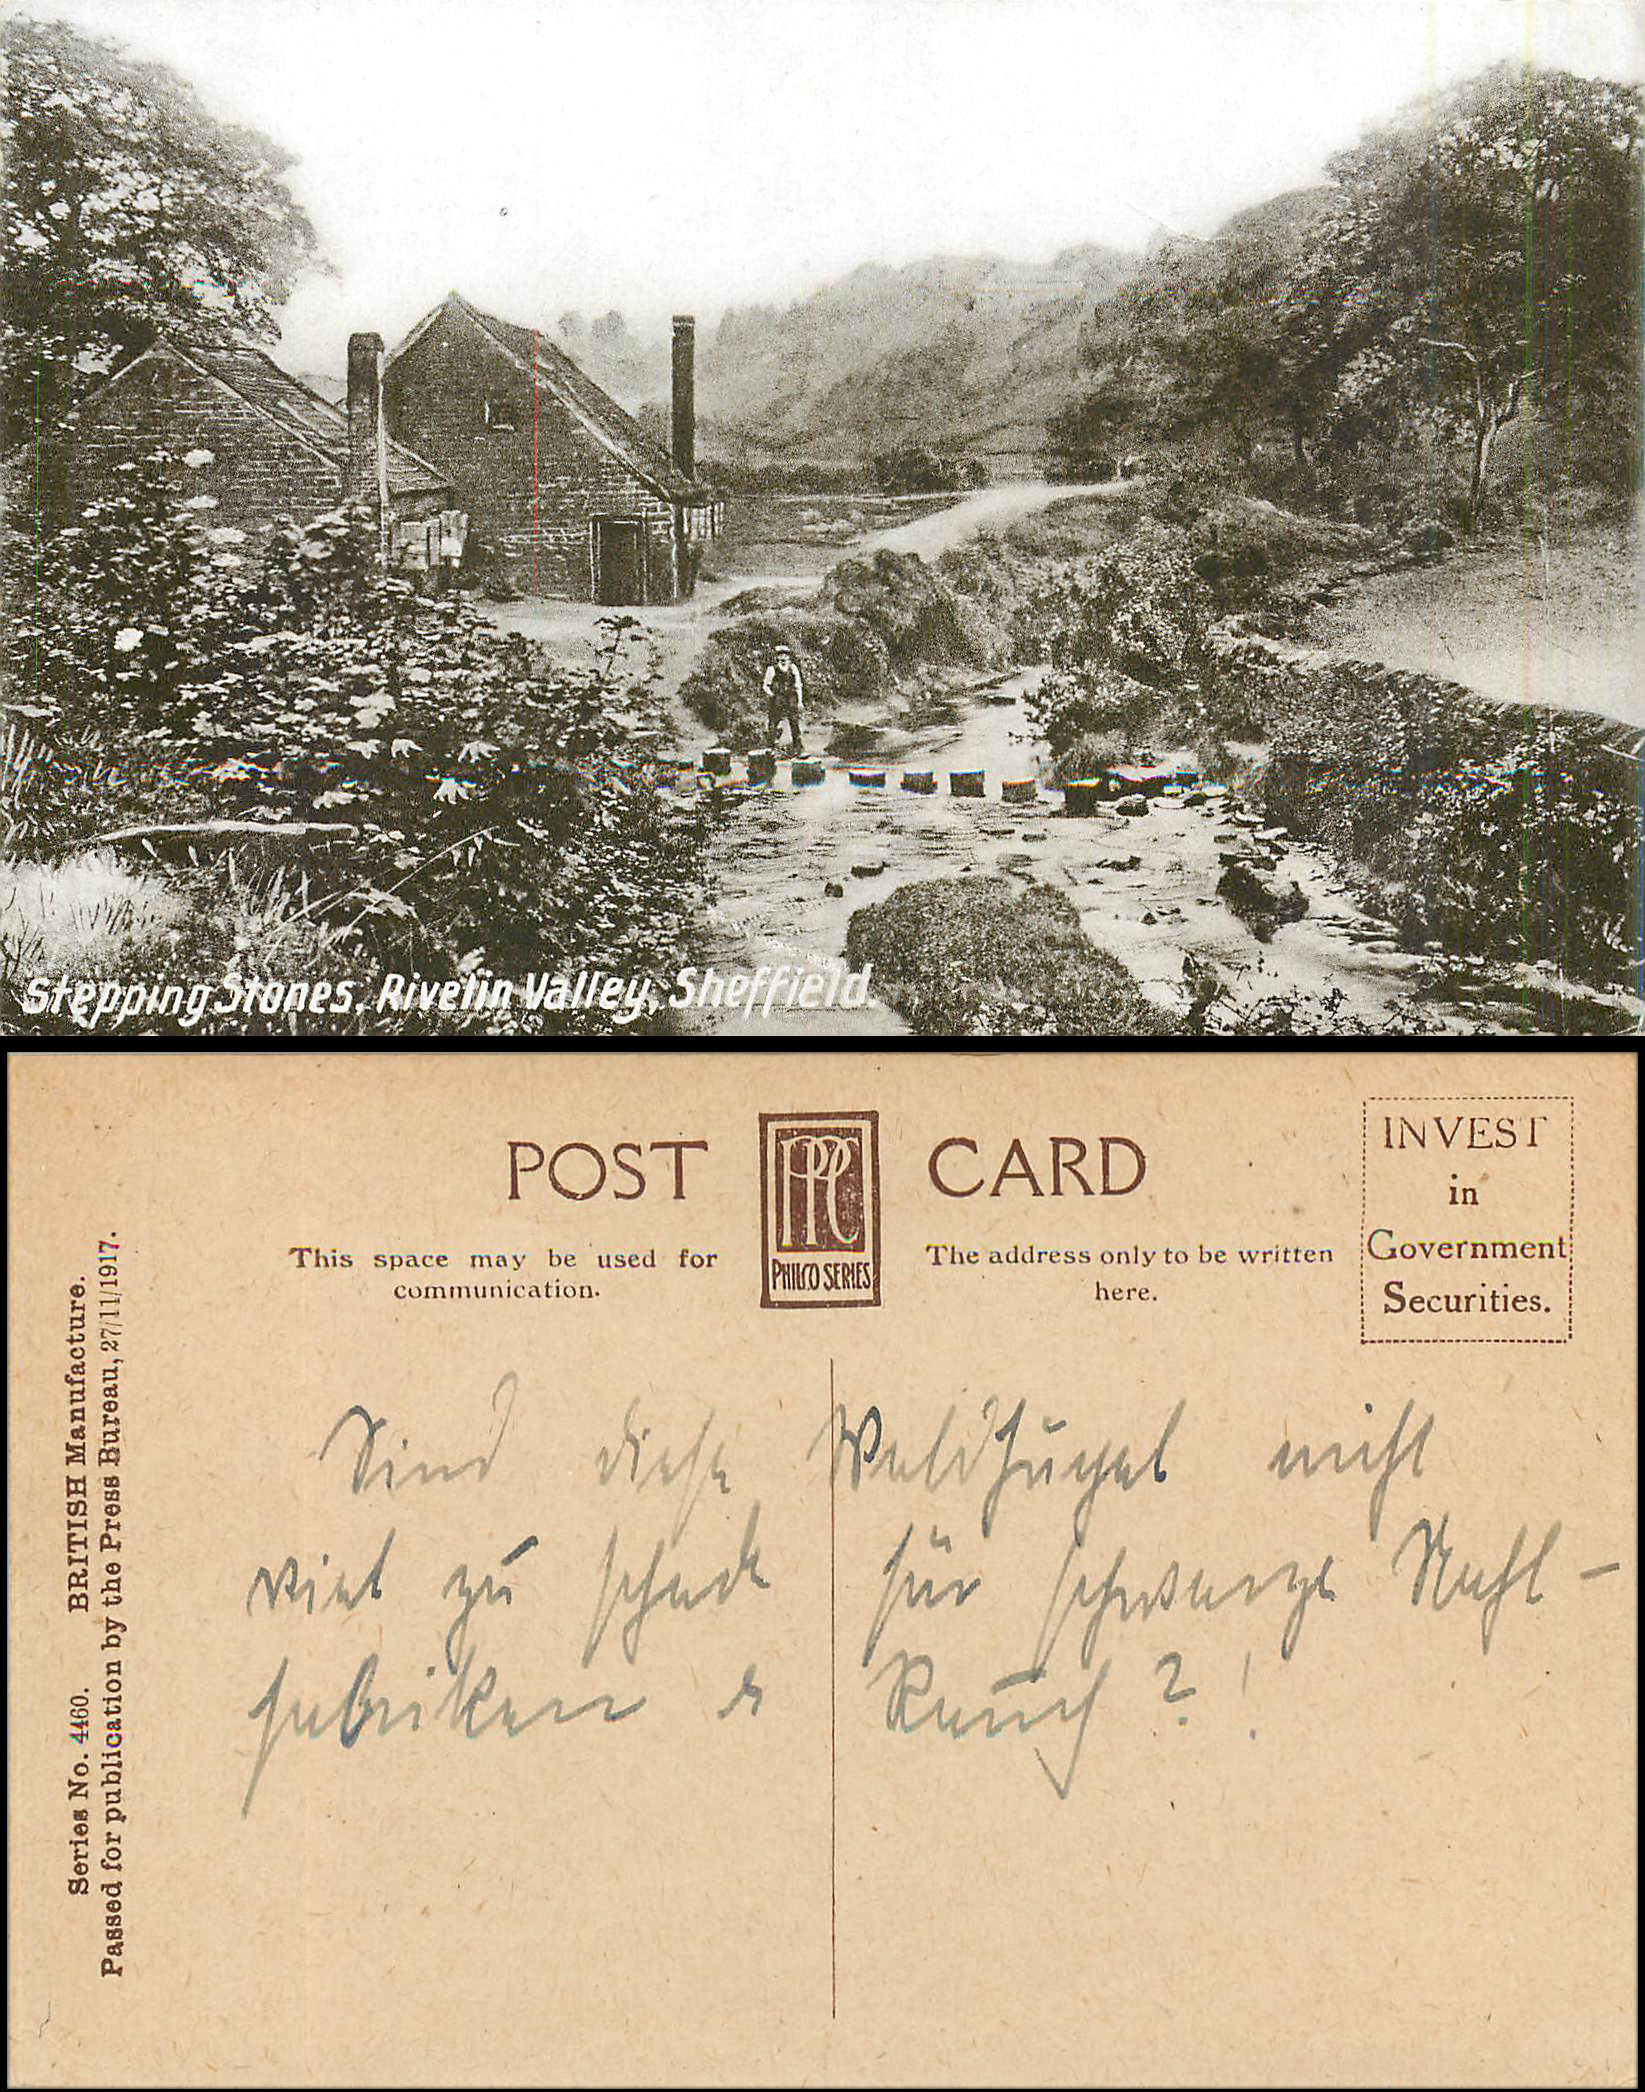 Stepping Stones, Rivelin Valley, Sheffield.
POST CARD
PPC
PHILCO SERIES
INVEST
in
Government
Securities.
This space may be used for
communication.
The address only to be written
here.
Series No. 4460. BRITISH Manufacture.
Passed for publication by the Press Bureau, 27/11/1917.
Sind diese Waldhügel nicht
viel zu schade für schwarze Stahl-
fabriken & Rauch?!